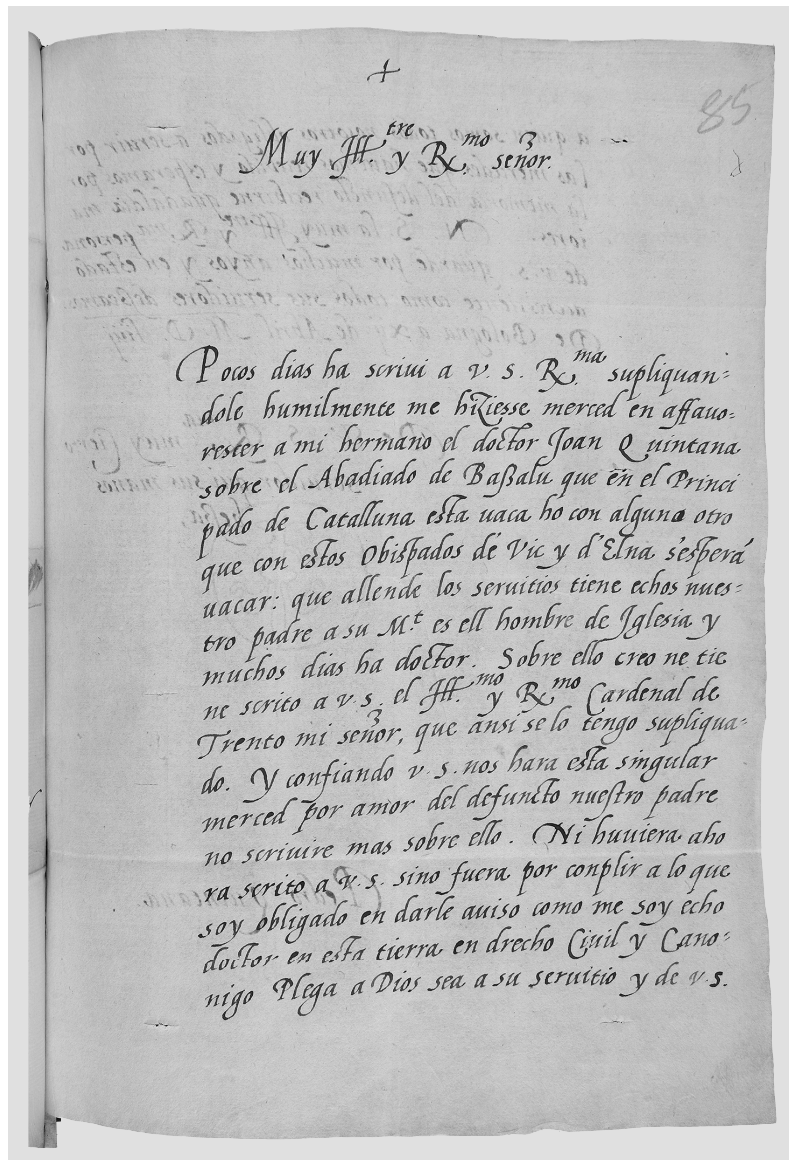 +
85
Muy Ill.tre y Rx.mo señor.
Pocos dias ha scriui a v. s. Rx.ma supliquan=
dole humilmente me hiziesse merced en affauo=
rester a mi hermano el doctor Joan Quintana
sobre el Abadiado de Baßalu que en el Princi
pado de Catalluna esta uaca ho con alguno otro
que con estos Obispados de Vic y d'Elna s'espera
uacar: que allende los seruitios tiene echos nues=
tro padre a su M.t es ell hombre de Iglesia y
muchos dias ha doctor. Sobre ello creo ne tie
ne scrito a v. s. el Ill.mo y Rx.mo Cardenal de
Trento mi señor, que ansi se lo tengo supliqua=
do. Y confiando v. s. nos hara esta singular
merced por amor del defuncto nuestro padre
no scriuire mas sobre ello. Ni huuiera aho
ra scrito a v. s. sino fuera por conplir a lo que
soy obligado en darle auiso como me soy echo
doctor en esta tierra en drecho Ciuil y Cano=
nigo Plega a Dios sea a su seruitio y de v. s.